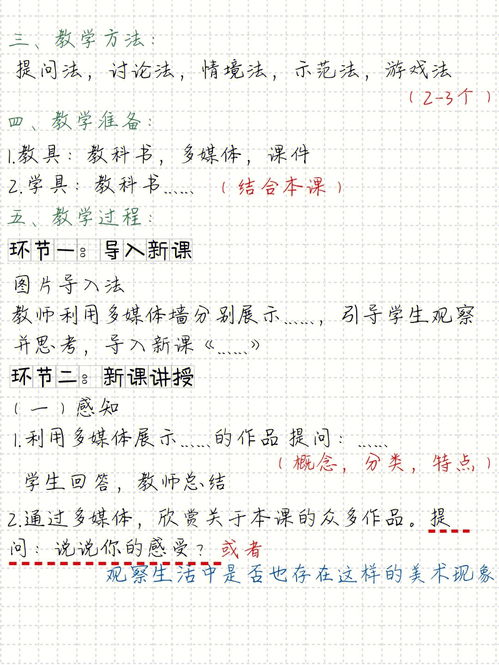 三、教学方法：
提问法，讨论法，情境法，示范法，游戏法
（2-3个）
四、教学准备：
1.教具：教科书，多媒体，课件
2.学具：教科书……（结合本课）
五、教学过程：
环节一：导入新课
图片导入法
教师利用多媒体墙分别展示……，引导学生观察
并思考，导入新课《……》
环节二：新课讲授
（一）感知
1.利用多媒体展示……的作品 提问：……
（概念，分类，特点）
学生回答，教师总结
2.通过多媒体，欣赏关于本课的众多作品。提
问：说说你的感受？或者
观察生活中是否也存在这样的美术现象